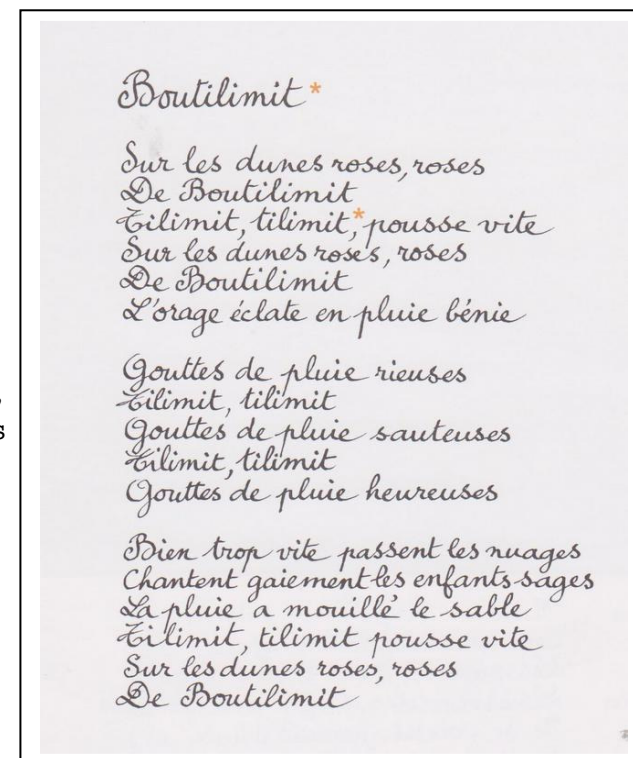 Boutilimit *
Sur les dunes roses, roses
De Boutilimit
Tilimit, tilimit,* pousse vite
Sur les dunes roses, roses
De Boutilimit
L'orage éclate en pluie bénie
Gouttes de pluie rieuses
Tilimit, tilimit
Gouttes de pluie sauteuses
Tilimit, tilimit
Gouttes de pluie heureuses
Bien trop vite passent les nuages
Chantent gaiement les enfants sages
La pluie a mouillé le sable
Tilimit, tilimit pousse vite
Sur les dunes roses, roses
De Boutilimit